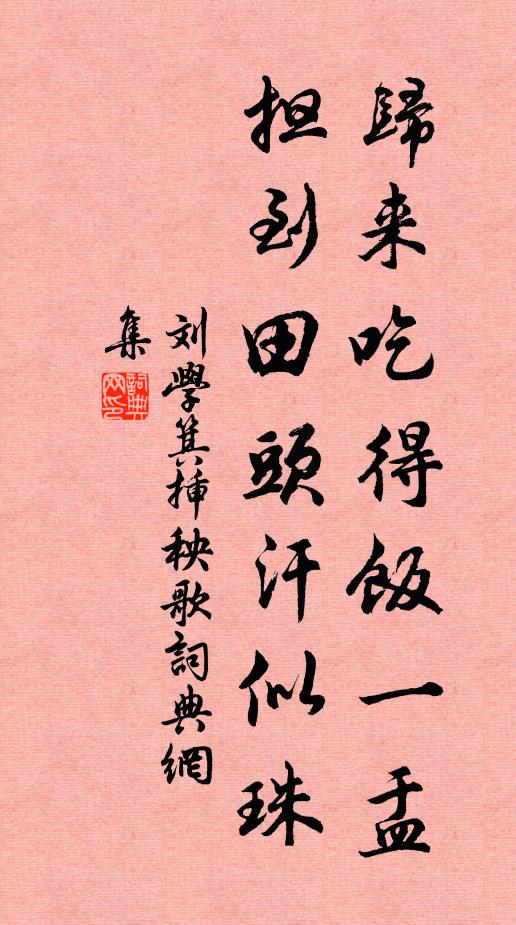 歸来吃得飯一盂
担到田頭汗似珠
刘學箕挿秧歌詞典網
集
詞典网印